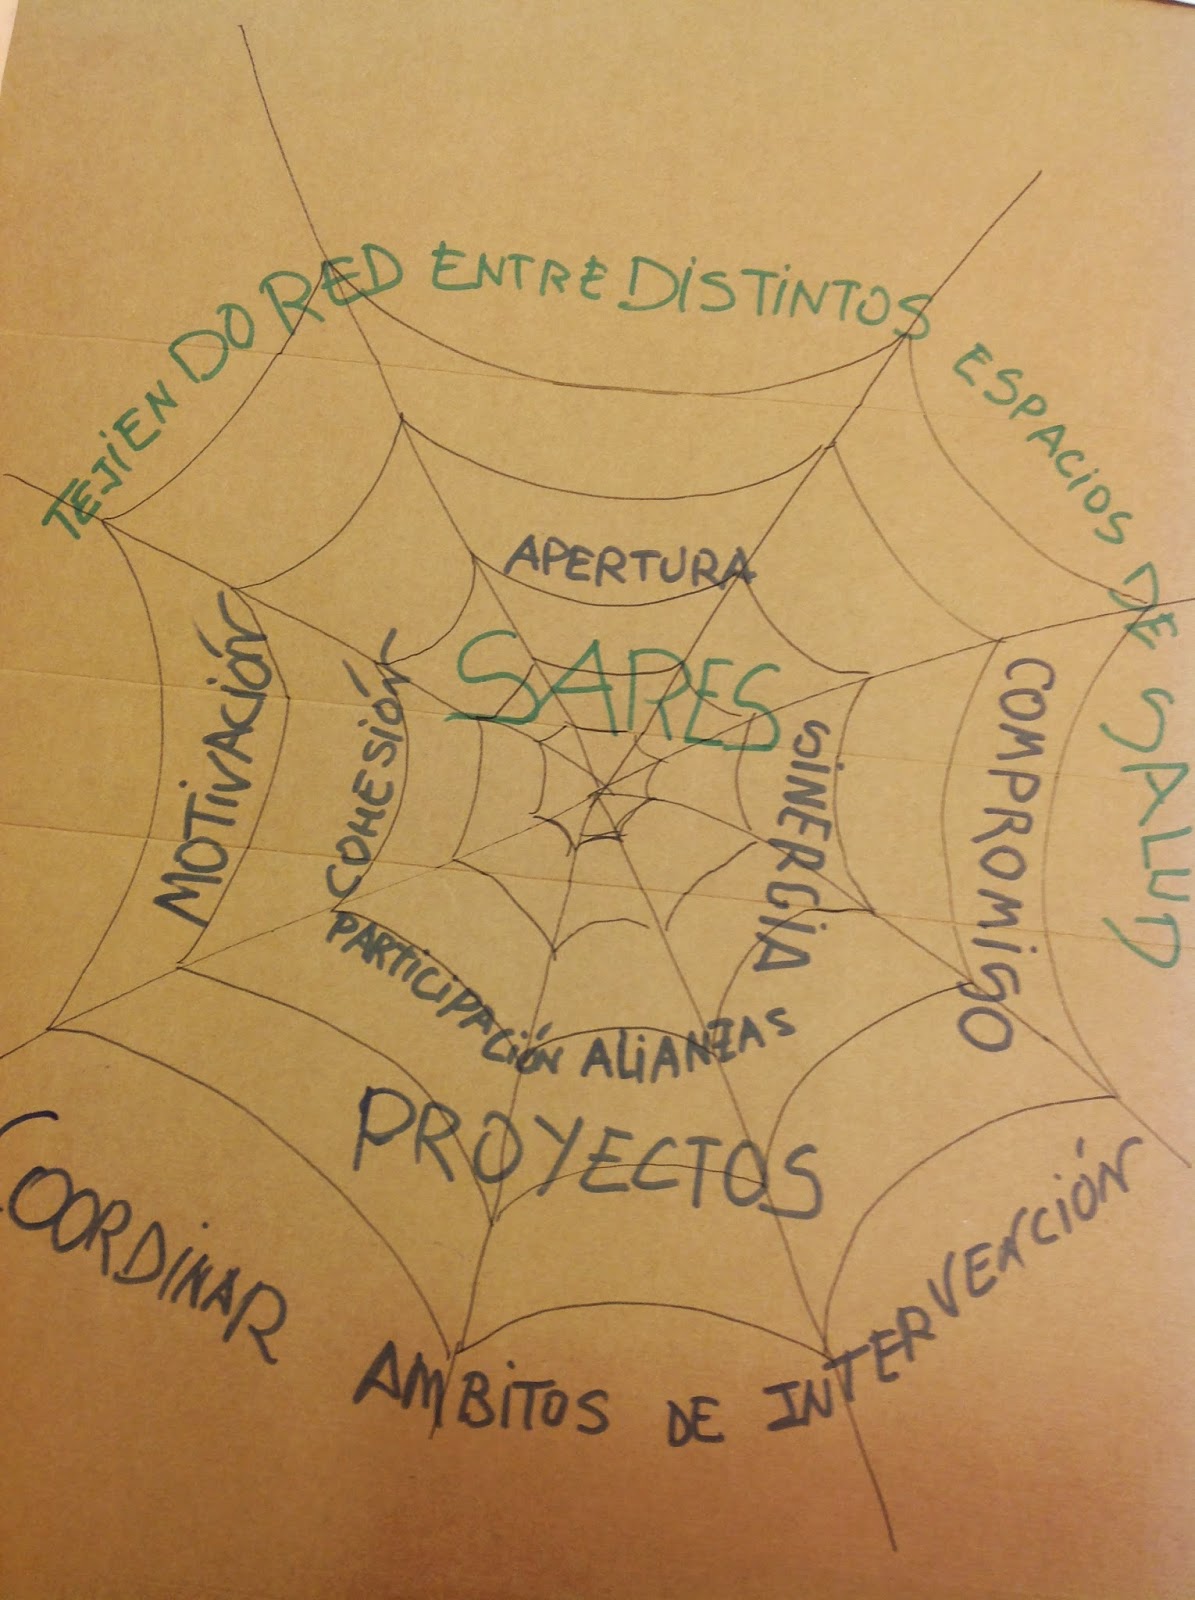 TEJIENDO RED ENTRE DISTINTOS ESPACIOS DE SALUD
APERTURA
SARES
MOTIVACIÓN
COHESIÓN
SINERGIA
COMPROMISO
PARTICIPACIÓN ALIANZAS
PROYECTOS
COORDINAR AMBITOS DE INTERVENCIÓN